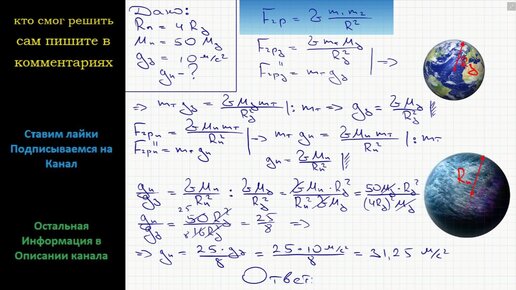 кто смог решить
сам пишите в
комментариях
Ставим лайки
Подписываемся на
Канал
Остальная
Информация в
Описании канала
Дано:
Rп = 4 Rз
Mп = 50 Mз
gз = 10 м/с²
gп - ?
Fгр = G m₁m₂/R²
Fгрз = G mт Mз/Rз²
Fгрз = mт gз
=> mт gз = G Mз mт/Rз² |: mт => gз = G Mз/Rз²
Fгрп = G Mп mт/Rп²
Fгрп = mт gп
=> mт gп = G Mп mт/Rп² |: mт
gп = G Mп/Rп²
gп/gз = G Mп/Rп² : G Mз/Rз² = G Mп · Rз²/Rп² G Mз = 50Mз · Rз²/(4Rз)² Mз
gп/gз = 25 50 Rз²/8 16 Rз² = 25/8 =>
=> gп = 25 · gз/8 = 25 · 10 м/с²/8 = 31,25 м/с²
Ответ:
Rз
Rп